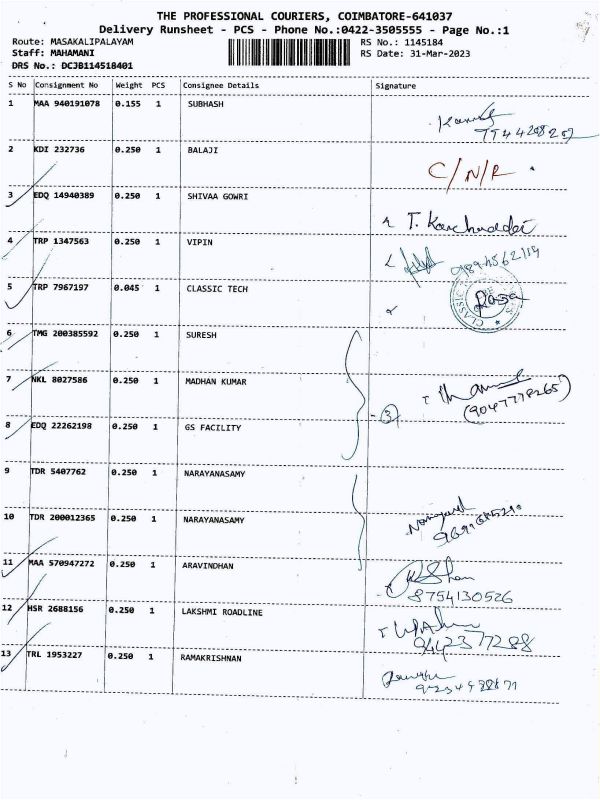 THE PROFESSIONAL COURIERS, COIMBATORE-641037
Delivery Runsheet - PCS - Phone No.:0422-3505555 - Page No.:1
Route: MASAKALIPALAYAM
Staff: MAHAMANI
DRS No.: DCJB114518401
RS No.: 1145184
RS Date: 31-Mar-2023
S No Consignment No Weight PCS Consignee Details Signature
1 MAA 940191078 0.155 1 SUBHASH
2 KDI 232736 0.250 1 BALAJI
C/N/R
3 EDQ 14940389 0.250 1 SHIVAA GOWRI
4 TRP 1347563 0.250 1 VIPIN
5 TRP 7967197 0.045 1 CLASSIC TECH
6 TMG 200385592 0.250 1 SURESH
7 NKL 8027586 0.250 1 MADHAN KUMAR
3
(9047778265)
8 EDQ 22262198 0.250 1 GS FACILITY
9 TDR 5407762 0.250 1 NARAYANASAMY
10 TDR 200012365 0.250 1 NARAYANASAMY
11 MAA 570947272 0.250 1 ARAVINDHAN
8754130526
12 HSR 2688156 0.250 1 LAKSHMI ROADLINE
9442377288
13 TRL 1953227 0.250 1 RAMAKRISHNAN